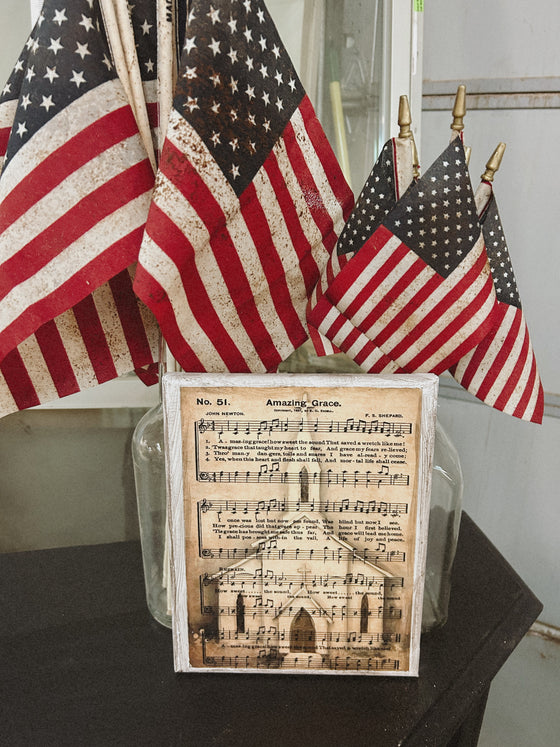 No. 51.
Amazing Grace.
JOHN NEWTON.
F. S. SHEPARD.
1. A - maz-ing grace! how sweet the sound That saved a wretch like me!
2. 'Twas grace that taught my heart to fear, And grace my fears re-lieved;
3. Thro' man-y dan-gers, toils and snares I have al-read-y come;
4. Yes, when this heart and flesh shall fail, And mor-tal life shall cease,
I once was lost but now am found, Was blind but now I see.
How pre-cious did that grace ap-pear The hour I first believed.
'Tis grace has brought me safe thus far, And grace will lead me home.
I shall pos-sess with in the vail, A life of joy and peace.
REFRAIN.
How sweet . . . . . the sound, How sweet . . . . the sound,
How sweet the sound, How sweet
A - maz-ing grace! how sweet the sound That saved a wretch like me.